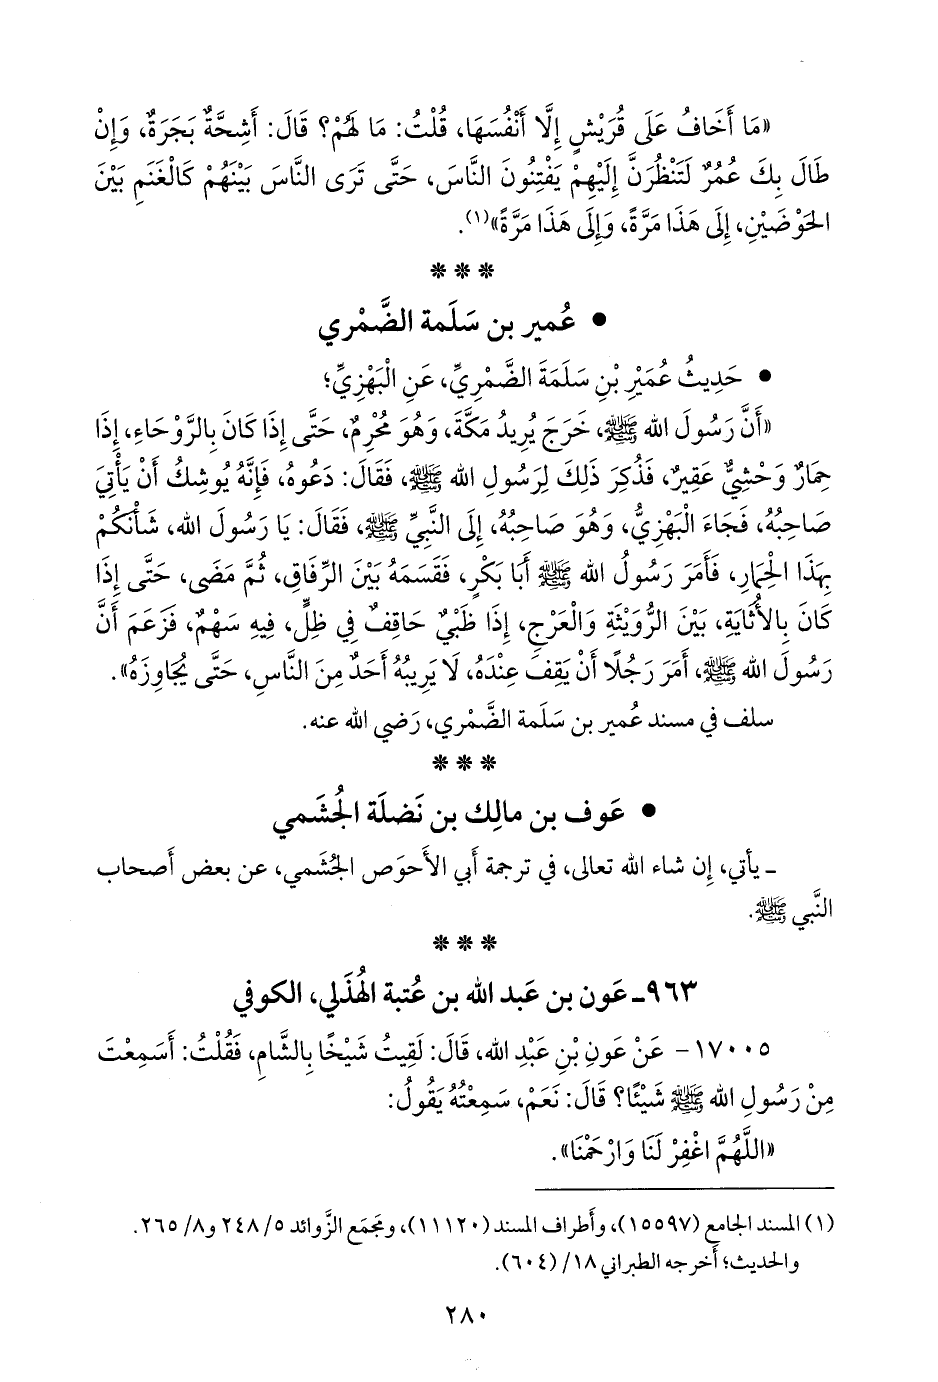 «مَا أَخَافُ عَلَى قُرَيْشٍ إِلَّا أَنْفُسَهَا، قُلْتُ: مَا لَهُمْ؟ قَالَ: أَشِحَّةٌ بَجَرَةٌ، وَإِنْ
طَالَ بِكَ عُمُرٌ لَتَنْظُرَنَّ إِلَيْهِمْ يَفْتِنُونَ النَّاسَ، حَتَّى تَرَى النَّاسَ بَيْنَهُمْ كَالْغَنَمِ بَيْنَ
الحَوْضَيْنِ، إِلَى هَذَا مَرَّةً، وَإِلَى هَذَا مَرَّةً»(١).
***
• عُمير بن سَلَمة الضَّمْري
• حَدِيثُ عُمَيْرِ بْنِ سَلَمَةَ الضَّمْرِيِّ، عَنِ الْبَهْزِيِّ؛
«أَنَّ رَسُولَ الله ﷺ، خَرَجَ يُرِيدُ مَكَّةَ، وَهُوَ مُحْرِمٌ، حَتَّى إِذَا كَانَ بِالرَّوْحَاءِ، إِذَا
حِمَارٌ وَحْشِيٌّ عَقِيرٌ، فَذُكِرَ ذَلِكَ لِرَسُولِ الله ﷺ، فَقَالَ: دَعُوهُ، فَإِنَّهُ يُوشِكُ أَنْ يَأْتِيَ
صَاحِبُهُ، فَجَاءَ الْبَهْزِيُّ، وَهُوَ صَاحِبُهُ، إِلَى النَّبِيِّ ﷺ، فَقَالَ: يَا رَسُولَ الله، شَأْنَكُمْ
بِهَذَا الْحِمَارِ، فَأَمَرَ رَسُولُ الله ﷺ أَبَا بَكْرٍ، فَقَسَمَهُ بَيْنَ الرِّفَاقِ، ثُمَّ مَضَى، حَتَّى إِذَا
كَانَ بِالْأُثَايَةِ، بَيْنَ الرُّوَيْثَةِ وَالْعَرْجِ، إِذَا ظَبْيٌ حَاقِفٌ فِي ظِلٍّ، فِيهِ سَهْمٌ، فَزَعَمَ أَنَّ
رَسُولَ الله ﷺ، أَمَرَ رَجُلًا أَنْ يَقِفَ عِنْدَهُ، لَا يَرِيبُهُ أَحَدٌ مِنَ النَّاسِ، حَتَّى يُجَاوِزَهُ».
سلف في مسند عُمير بن سَلَمة الضَّمْري، رَضي الله عنه.
***
• عَوف بن مالِك بن نَضلَة الجُشَمي
ـ يأتي، إِن شاء الله تعالى، في ترجمة أَبي الأَحوَص الجُشَمي، عن بعض أَصحاب
النَّبي ﷺ.
***
٩٦٣ـ عَون بن عَبد الله بن عُتبة الهُذَلي، الكوفي
١٧٠٠٥- عَنْ عَوْنِ بْنِ عَبْدِ الله، قَالَ: لَقِيتُ شَيْخًا بِالشَّامِ، فَقُلْتُ: أَسَمِعْتَ
مِنْ رَسُولِ الله ﷺ شَيْئًا؟ قَالَ: نَعَمْ، سَمِعْتُهُ يَقُولُ:
«اللَّهُمَّ اغْفِرْ لَنَا وَارْحَمْنَا».
(١) المسند الجامع (١٥٥٩٧)، وأَطراف المسند (١١١٢٠)، ومَجمَع الزَّوائد ٥/ ٢٤٨ و٨/ ٢٦٥.
والحديث؛ أَخرجه الطبراني ١٨/ (٦٠٤).
٢٨٠